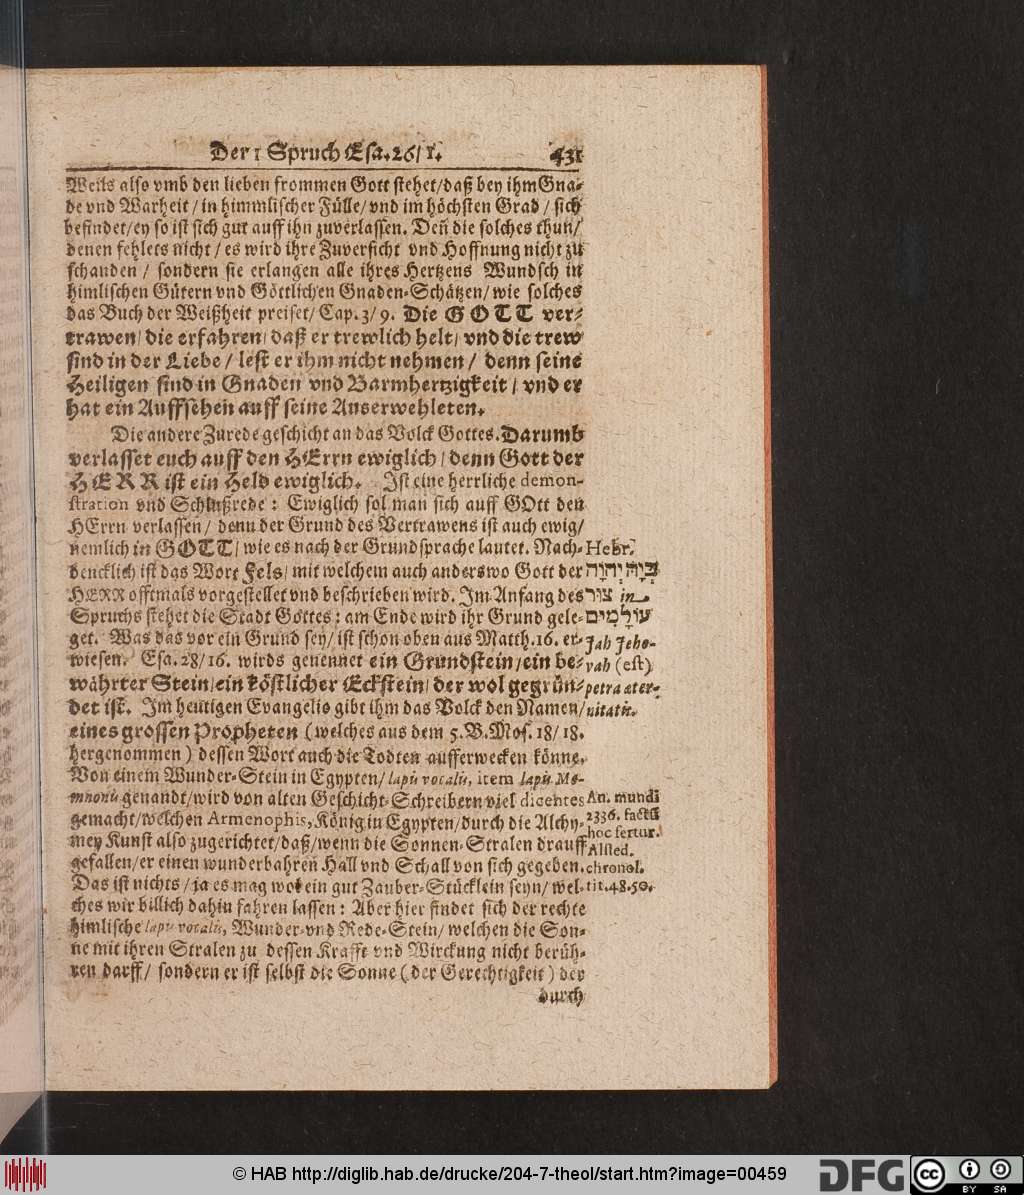 Der 1 Spruch Esa. 26/ 1. 431
Weils also vmb den lieben frommen Gott stehet/daß bey ihm Gna-
de vnd Warheit / in himmlischer Fülle/ vnd im höchsten Grad / sich
befindet/ey so ist sich gut auff ihn zuverlassen. Deñ die solches thun/
denen fehlets nicht / es wird ihre Zuversicht vnd Hoffnung nicht zu
schanden / sondern sie erlangen alle ihres Hertzens Wundsch in
himlischen Gütern vnd Göttlichen Gnaden-Schätzen/ wie solches
das Buch der Weißheit preiset/ Cap. 3/ 9. Die GOTT ver-
trawen/ die erfahren/ daß er trewlich helt/ vnd die trew
sind in der Liebe / lest er ihm nicht nehmen / denn seine
Heiligen sind in Gnaden vnd Barmhertzigkeit / vnd er
hat ein Auffsehen auff seine Auserwehleten.
Die andere Zurede geschicht an das Volck Gottes. Darumb
verlasset euch auff den HErrn ewiglich/ denn Gott der
HERR ist ein Held ewiglich. Ist eine herrliche demon-
stration vnd Schlußrede : Ewiglich sol man sich auff GOtt den
HErrn verlassen / denn der Grund des Vertrawens ist auch ewig/
nemlich in GOTT/ wie es nach der Grundsprache lautet. Nach-
dencklich ist das Wort Fels/ mit welchem auch anderswo Gott der
HERR offtmals vorgestellet vnd beschrieben wird. Im Anfang des
Spruchs stehet die Stadt Gottes : am Ende wird ihr Grund gele-
get. Was das vor ein Grund sey/ ist schon oben aus Matth. 16. er-
wiesen. Esa. 28/ 16. wirds genennet ein Grundstein/ ein be-
währter Stein/ ein köstlicher Eckstein/ der wol gegrün-
det ist. Im heutigen Evangelio gibt ihm das Volck den Namen/
eines grossen Propheten (welches aus dem 5. B. Mos. 18/ 18.
hergenommen) dessen Wort auch die Todten aufferwecken könne.
Von einem Wunder-Stein in Egypten/ lapis vocalis, item lapis Me-
mnonis genandt/ wird von alten Geschicht-Schreibern viel dicentes
gemacht/ welchen Armenophis, König in Egypten/ durch die Alchy-
mey Kunst also zugerichtet/ daß/ wenn die Sonnen-Stralen drauff
gefallen/ er einen wunderbahren Hall vnd Schall von sich gegeben.
Das ist nichts / ja es mag wol ein gut Zauber-Stücklein seyn/ wel-
ches wir billich dahin fahren lassen : Aber hier findet sich der rechte
himlische lapis vocalis, Wunder-vnd Rede-Stein/ welchen die Son-
ne mit ihren Stralen zu dessen Krafft vnd Wirckung nicht berüh-
ren darff / sondern er ist selbst die Sonne (der Gerechtigkeit) der
durch
Hebr.
בְּיָהּ יְהוָה
צוּר in
עוֹלָמִים
Jah Jeho-
vah (est)
petra æter-
nitatis.
An. mundi
2336. factũ
hoc fertur.
Alsted.
chronol.
tit. 48. 50.
© HAB http://diglib.hab.de/drucke/204-7-theol/start.htm?image=00459
DFG
cc BY SA